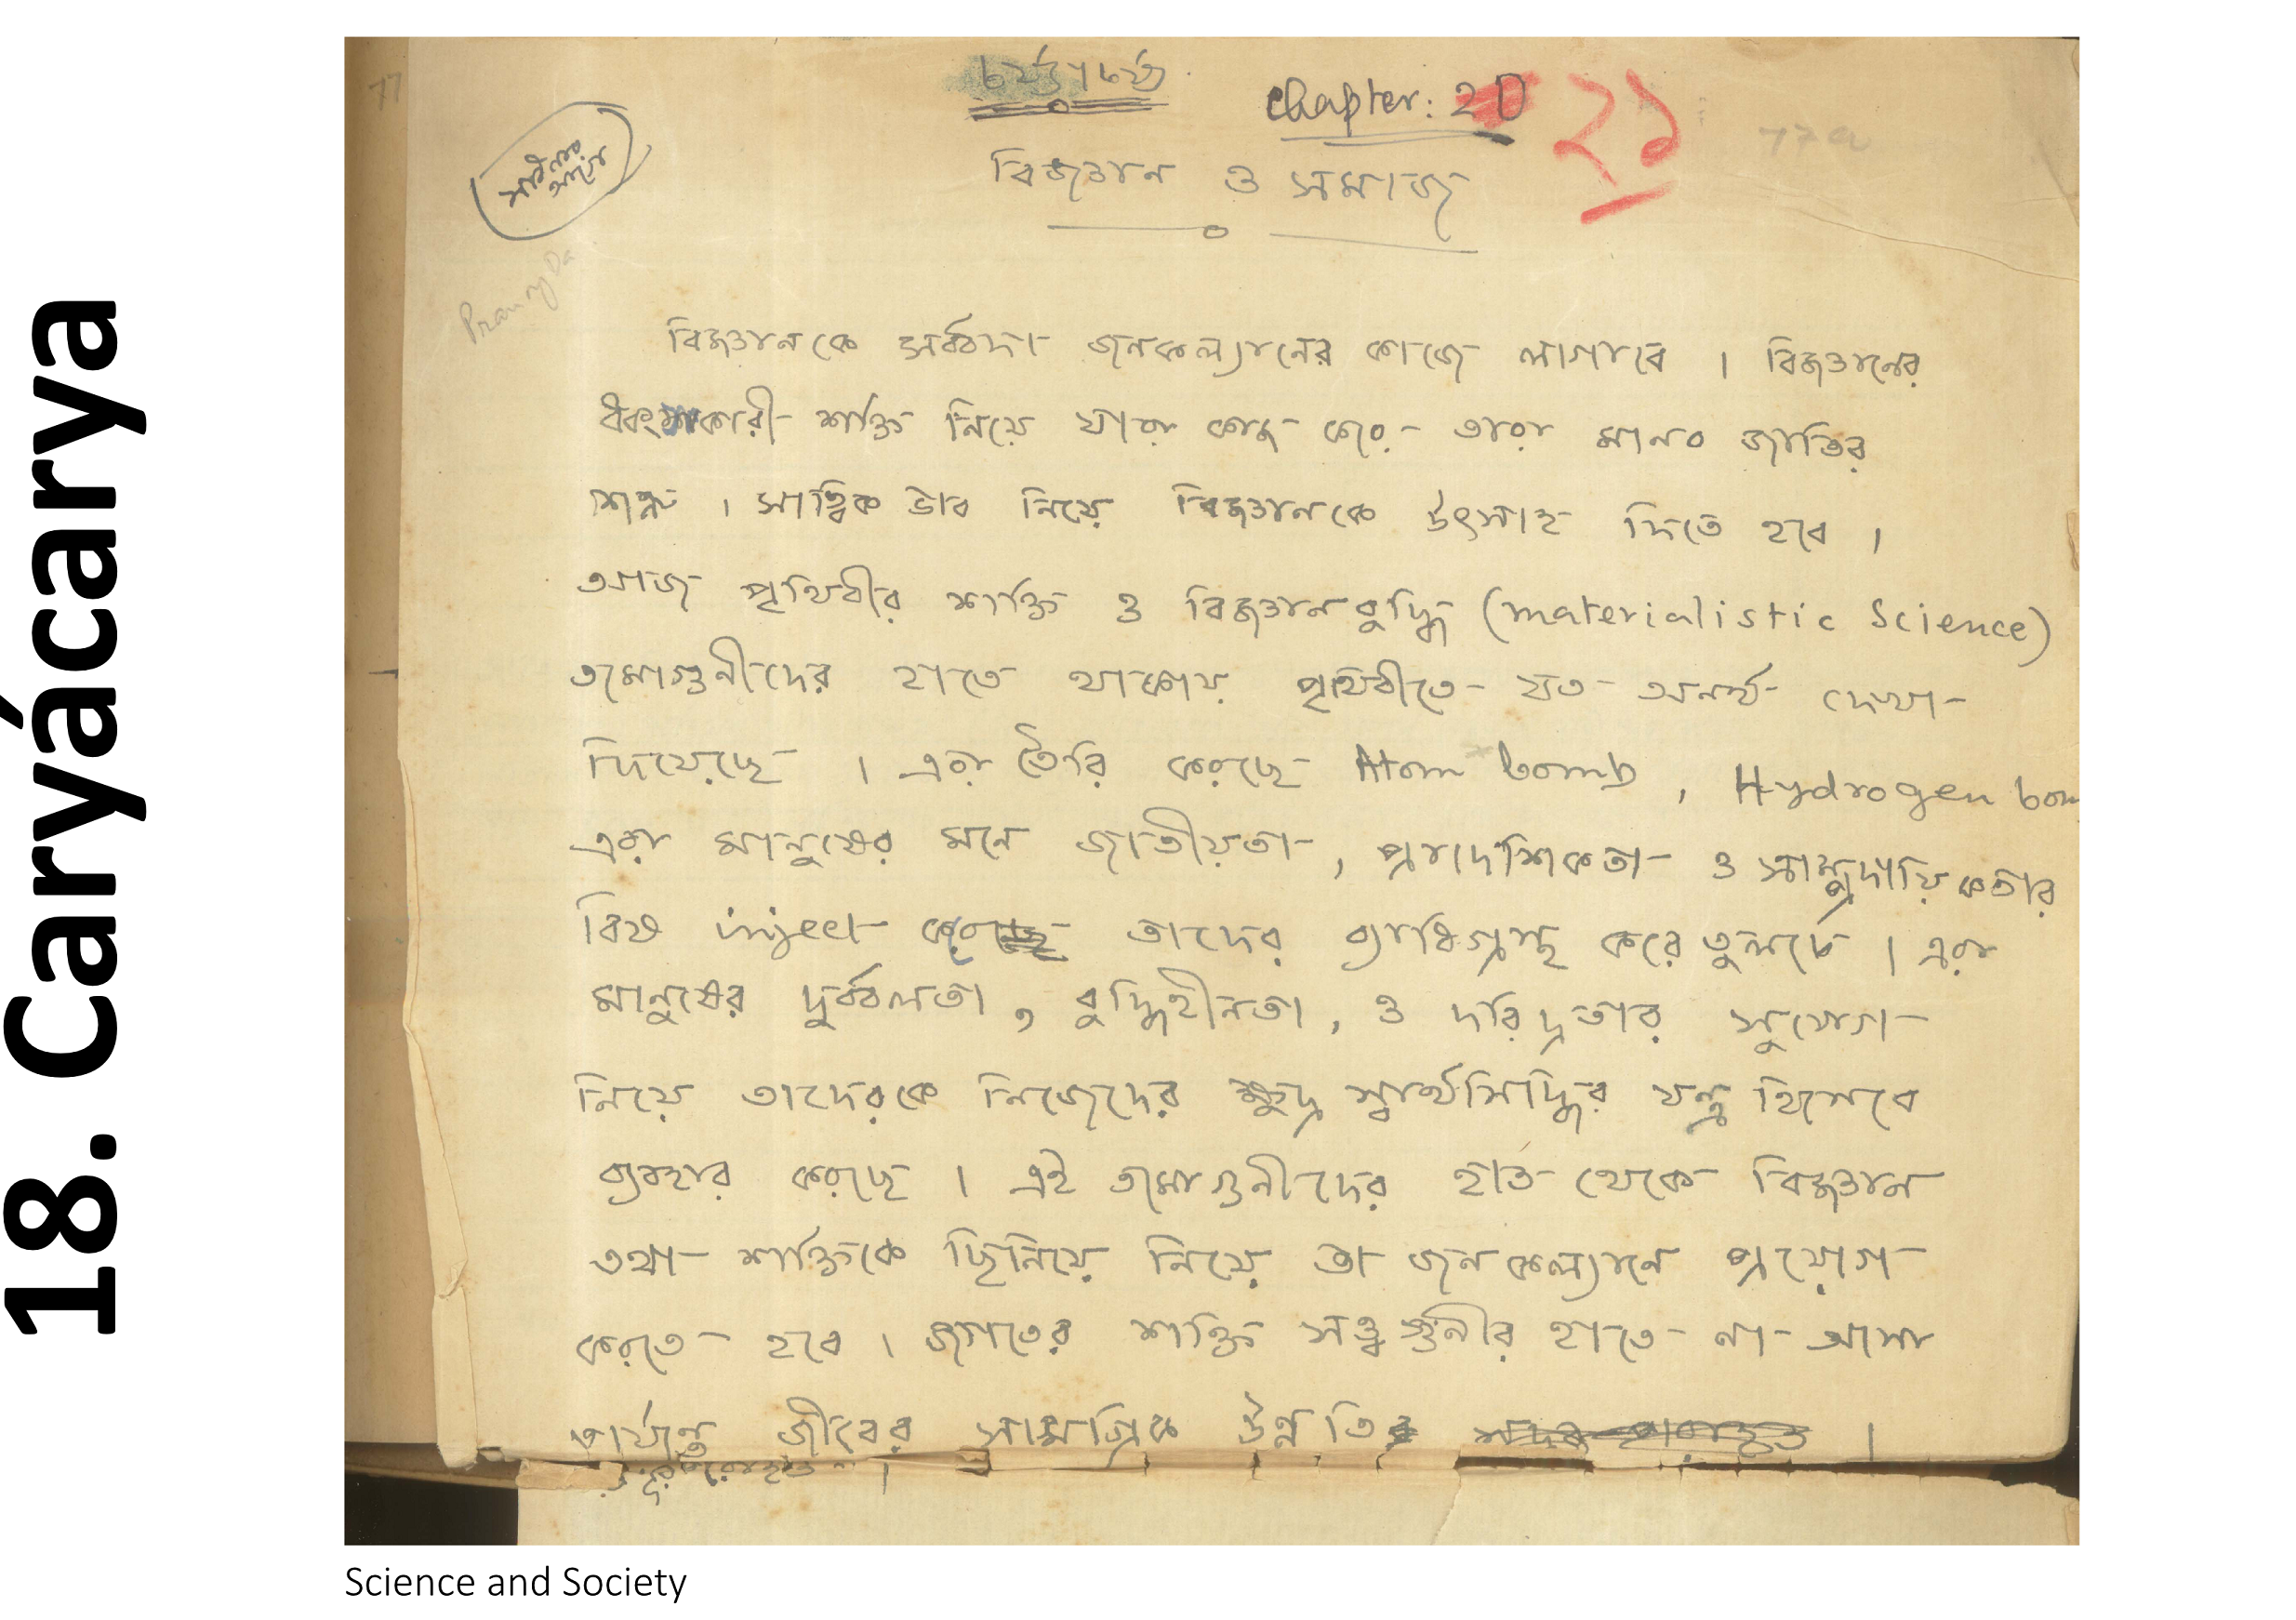 18. Caryácarya
77
চর্য্যাচর্য্য
chapter: 20 ২১
77a
বিজ্ঞান ও সমাজ
Pranay Da
বিজ্ঞানকে সর্ব্বদা জনকল্যানের কাজে লাগাবে । বিজ্ঞানের
ধ্বংসকারী শক্তি নিয়ে যারা কাজ করে তারা মানব জাতির
শত্রু । সাত্ত্বিক ভাব নিয়ে বিজ্ঞানকে উৎসাহ দিতে হবে ।
আজ পৃথিবীর শক্তি ও বিজ্ঞানবুদ্ধি (materialistic Science)
তমোগুনীদের হাতে থাকায় পৃথিবীতে যত অনর্থ দেখা
দিয়েছে । এরা তৈরি করছে Atom bomb, Hydrogen bom
এরা মানুষের মনে জাতীয়তা, প্রাদেশিকতা ও সাম্প্রদায়িকতার
বিষ inject করে তাদের ব্যাধিগ্রস্থ করে তুলছে । এরা
মানুষের দুর্ব্বলতা, বুদ্ধিহীনতা, ও দরিদ্রতার সুযোগ
নিয়ে তাদেরকে নিজেদের ক্ষুদ্র স্বার্থসিদ্ধির যন্ত্র হিসেবে
ব্যবহার করছে । এই তমোগুনীদের হাত থেকে বিজ্ঞান
তথা শক্তিকে ছিনিয়ে নিয়ে তা জনকল্যানে প্রয়োগ
করতে হবে । জগতের শক্তি সত্ত্বগুনীর হাতে না আসা
পর্য্যন্ত জীবের সামগ্রিক উন্নতি ।
Science and Society